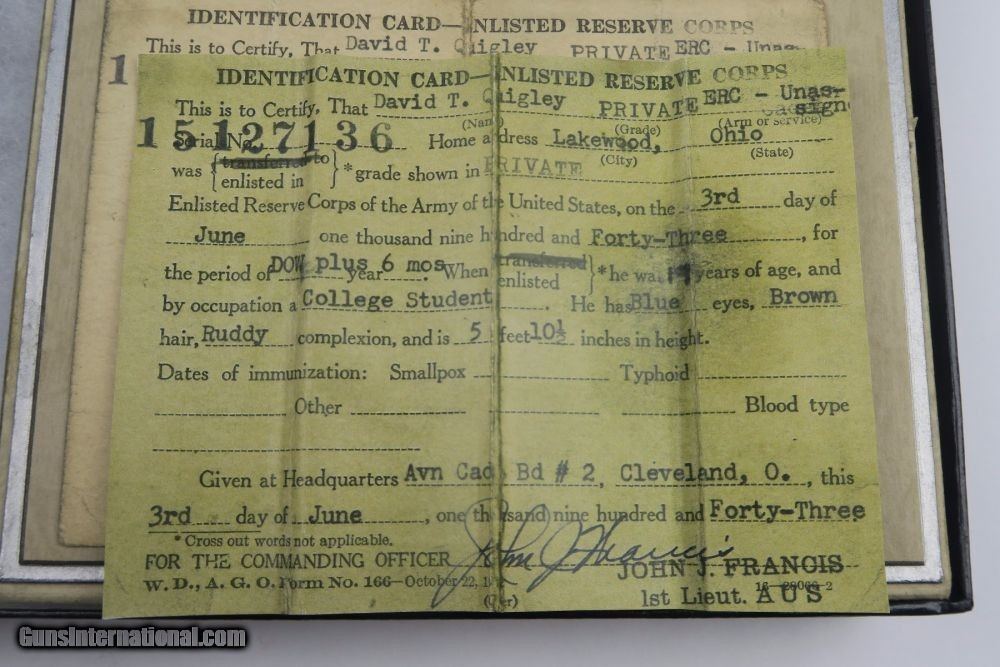 IDENTIFICATION CARD—ENLISTED RESERVE CORPS
This is to Certify, That David T. Quigley PRIVATE ERC - Unas-
1
IDENTIFICATION CARD—ENLISTED RESERVE CORPS
This is to Certify, That David T. Quigley PRIVATE ERC - Unas-
signe
(Name) (Grade) (Arm or service)
Serial No. 15127136 Home address Lakewood, Ohio
(City) (State)
was {transferred to
enlisted in} *grade shown in PRIVATE
Enlisted Reserve Corps of the Army of the United States, on the 3rd day of
June one thousand nine hundred and Forty-Three, for
the period of DOW plus 6 mos year . When {transferred
enlisted} *he was 19 years of age, and
by occupation a College Student. He has Blue eyes, Brown
hair, Ruddy complexion, and is 5 feet 10½ inches in height.
Dates of immunization: Smallpox Typhoid
Other Blood type
Given at Headquarters Avn Cad Bd # 2, Cleveland, O., this
3rd day of June, one thousand nine hundred and Forty-Three
*Cross out words not applicable.
FOR THE COMMANDING OFFICER John J. Francis
JOHN J. FRANCIS
W. D., A. G. O. Form No. 166—October 22, 16—28066-2
(Over) 1st Lieut. AUS
GunsInternational.com